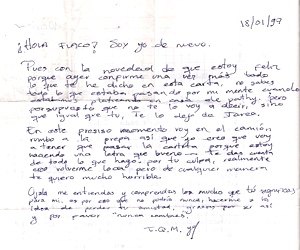 18/01/97
¡HOLA FLACO? Soy yo de nuevo.
Pues con la novedad de que estoy feliz
porque ayer confirme una vez más todo
lo que te he dicho en esta carta, no sabes
todo lo que estaba pasando por mi mente cuando
estabamos platicando en casa de pathy, pero
por supuesto que no te lo voy a decir, sino
que igual que tu, te lo dejo de tarea.
En este preciso momento voy en el camión,
rumbo a la prepa así que yo creo que voy
a tener que pasar la cartita porque estoy
haciendo una letra que bueno — te das cuenta
de todo lo que hago por tu culpa, realmente
creo volverme loca, pero de cualquier manera,
te quiero mucho horrible.
Ojala me entiendas y comprendas lo mucho que tú significas
para mi, es por eso que no podría nunca, hacerme a la
idea de perder tu amistad, gracias por ser así
y por favor "nunca cambies".
T.Q.M. yo